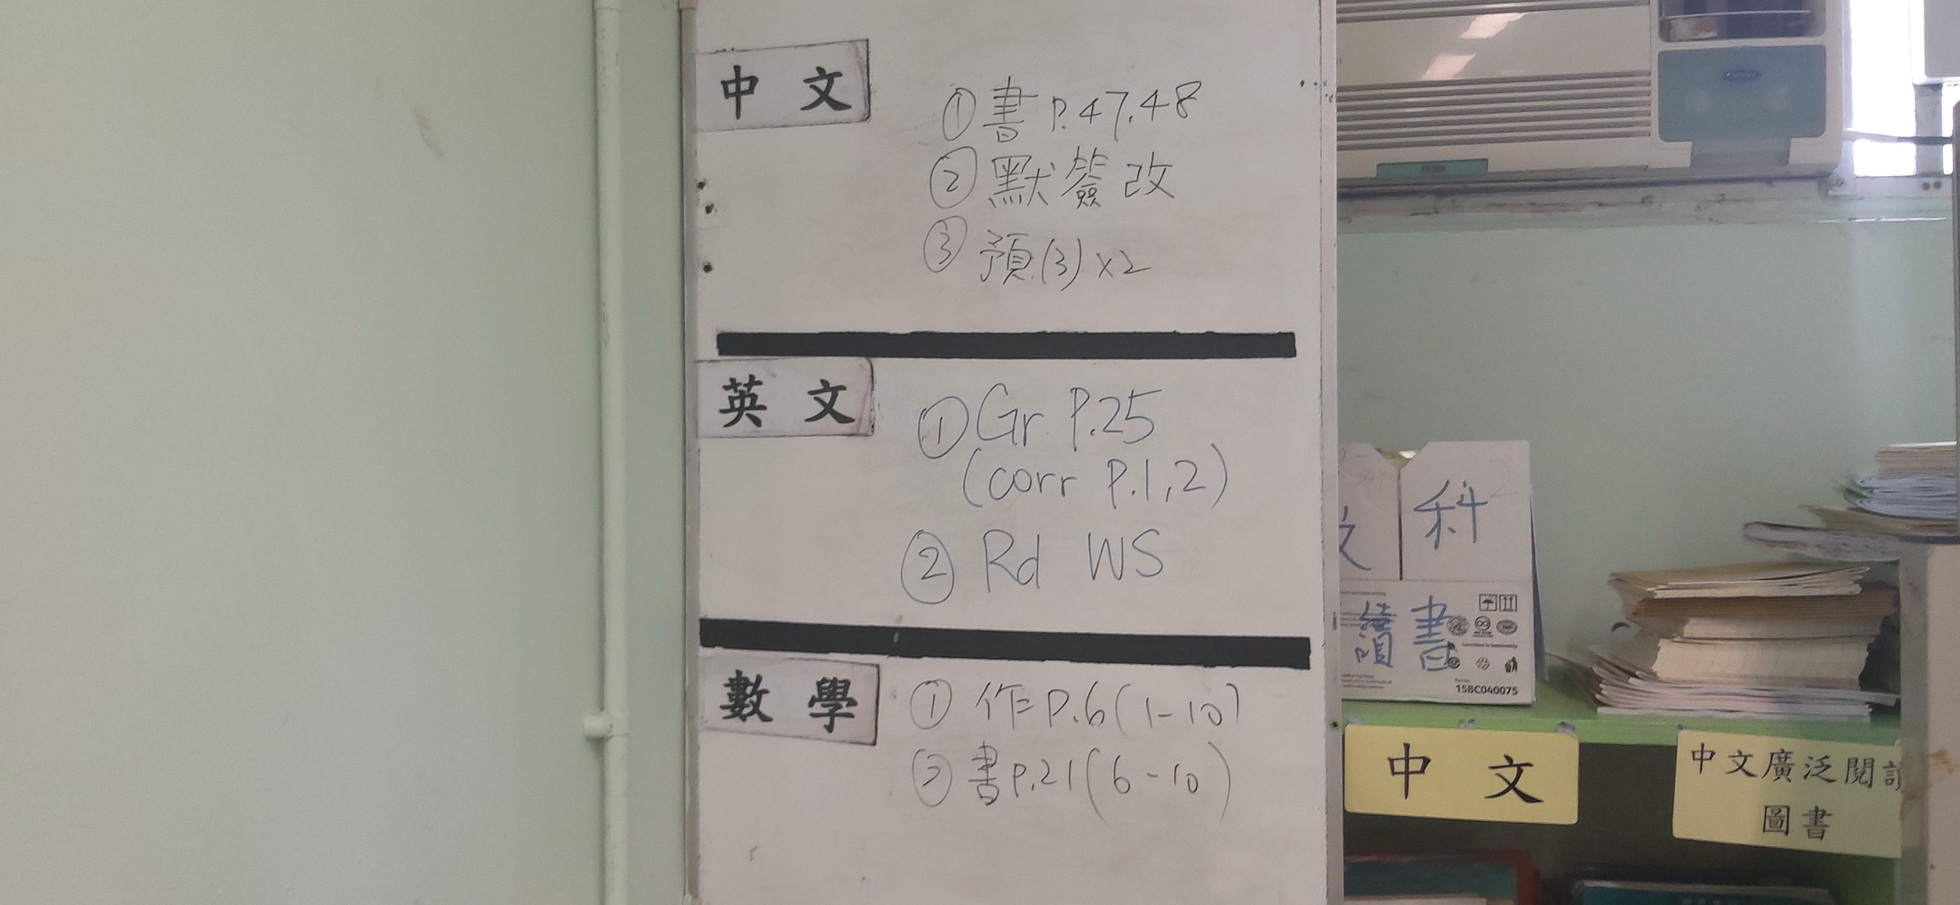 中文
① 書 P.47,48
② 默簽改
③ 預(3)×2
英文
① Gr P.25
(corr P.1,2)
② Rd WS
數學
① 作 P.6(1-10)
② 書 P.21(6-10)
科
讀書
158C040075
中文
中文廣泛閱讀
圖書